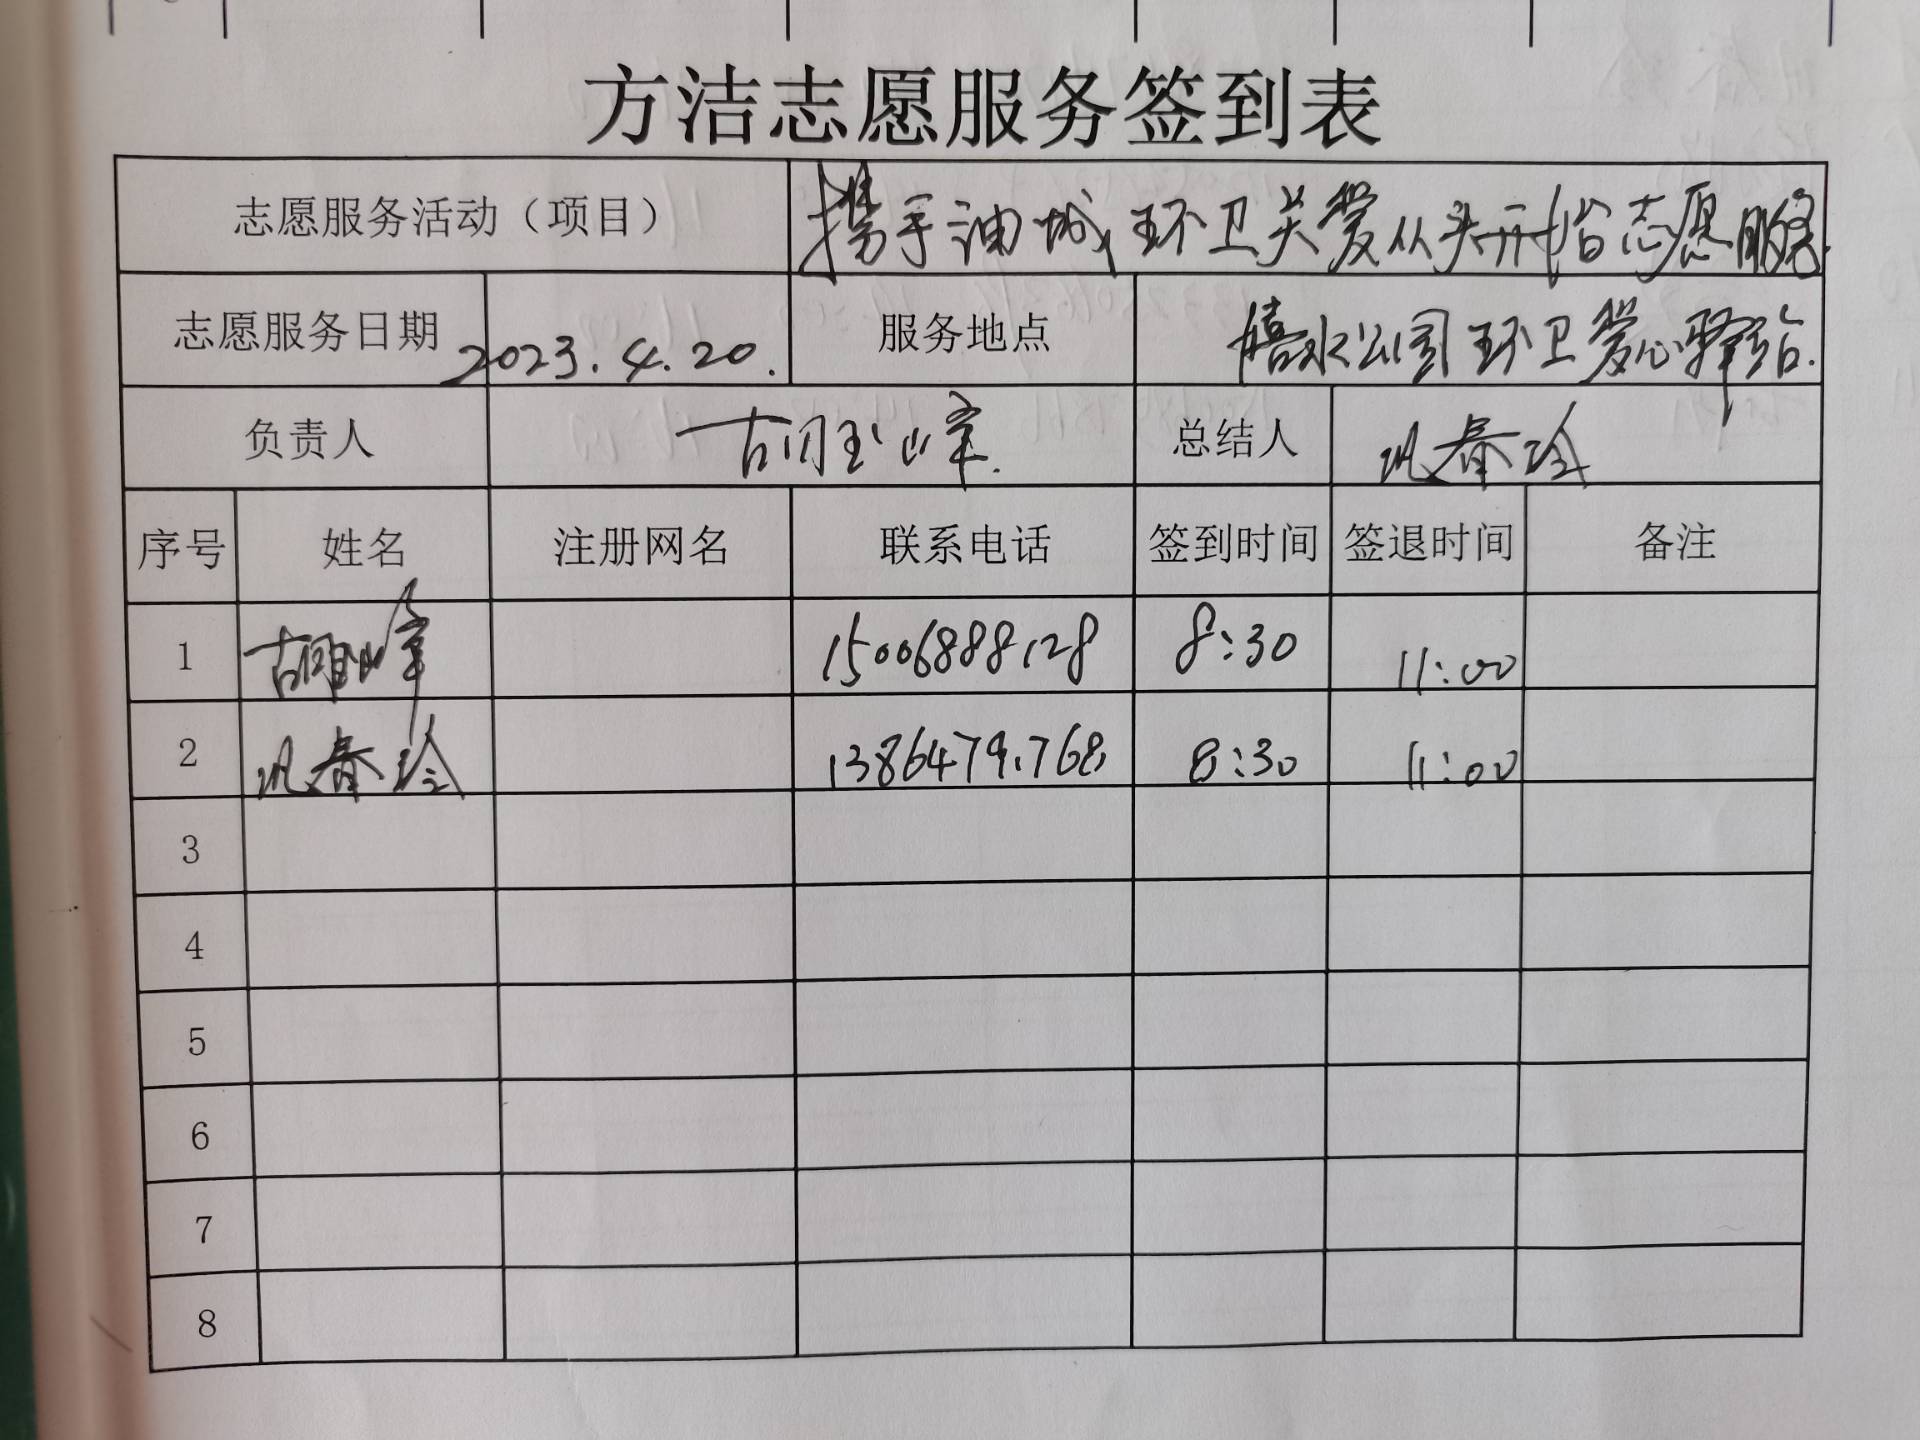 方洁志愿服务签到表
志愿服务活动（项目） 携手油城环卫关爱从头开始志愿服务.
志愿服务日期 2023.4.20. 服务地点 嬉水公园环卫爱心驿站.
负责人 胡玉峰. 总结人 巩春玲
序号 姓名 注册网名 联系电话 签到时间 签退时间 备注
1 胡玉峰 15006888128 8:30 11:00
2 巩春玲 13864791768 8:30 11:00
3
4
5
6
7
8